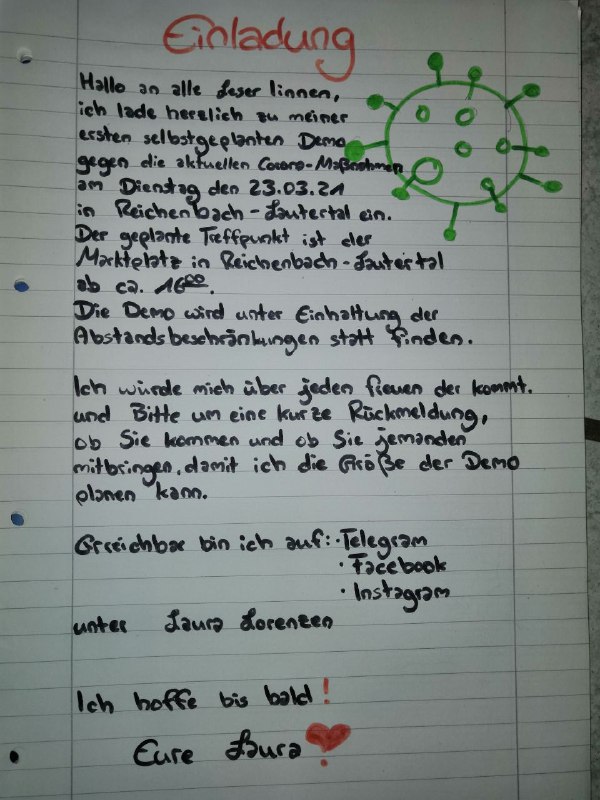 Einladung
Hallo an alle Leser linnen,
ich lade herzlich zu meiner
ersten selbstgeplanten Demo
gegen die aktuellen Corona-Maßnahmen
am Dienstag den 23.03.21
in Reichenbach-Lautertal ein.
Der geplante Treffpunkt ist der
Marktplatz in Reichenbach-Lautertal
ab ca. 16⁰⁰.
Die Demo wird unter Einhaltung der
Abstandsbeschränkungen statt finden.
Ich würde mich über jeden freuen der kommt.
und Bitte um eine kurze Rückmeldung,
ob Sie kommen und ob Sie jemanden
mitbringen, damit ich die Größe der Demo
planen kann.
Erreichbar bin ich auf: · Telegram
· Facebook
· Instagram
unter Laura Lorenzen
Ich hoffe bis bald!
Eure Laura